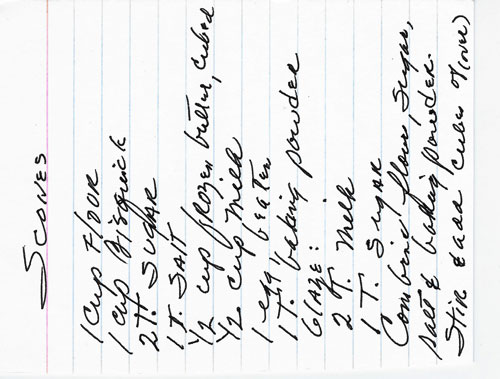 SCONES
1 cup FlOUR
1 cup BisQuick
2 H SUGAR
1 t. SALT
1/2 cup frozen butter, cubed
1/2 cup Milk
1 egg, beaten
1 T. baking powder
GlAZE:
2 T. Milk
1 T. SugAR
Combine flour, sugar,
salt & baking powder.
Stir & add cubes (over)